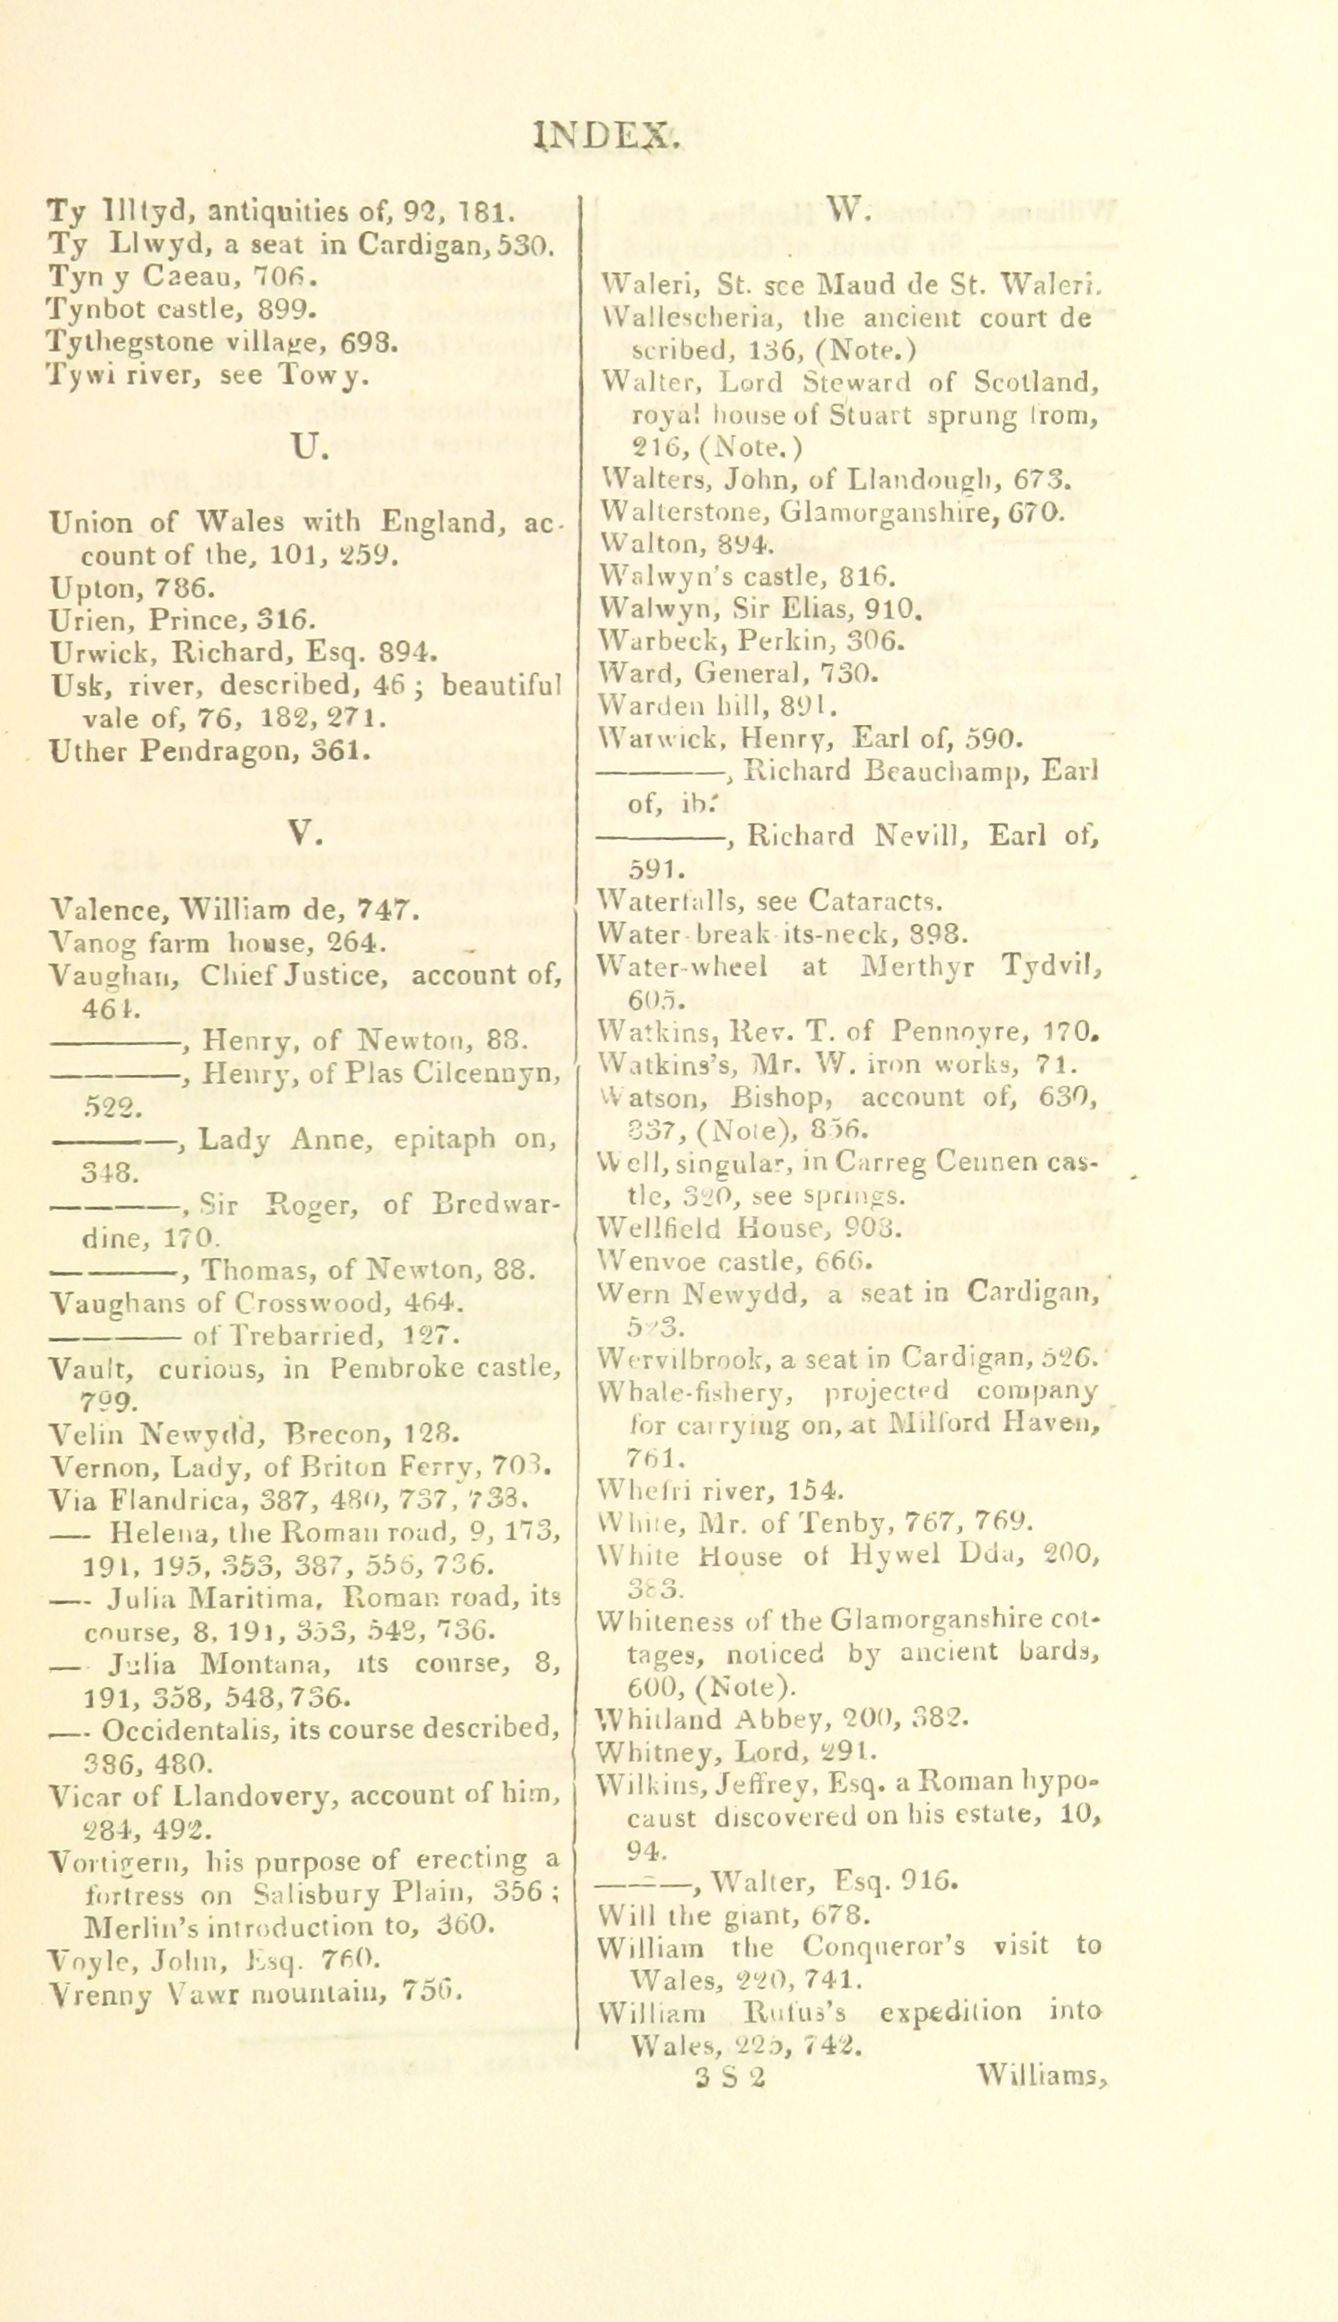 INDEX.
Ty Illtyd, antiquities of, 92, 181.
Ty Llwyd, a seat in Cardigan, 530.
Tyn y Caeau, 706.
Tynbot castle, 899.
Tythegstone village, 698.
Tywi river, see Towy.
U.
Union of Wales with England, ac-
count of the, 101, 259.
Upton, 786.
Urien, Prince, 316.
Urwick, Richard, Esq. 894.
Usk, river, described, 46; beautiful
vale of, 76, 182, 271.
Uther Pendragon, 361.
V.
Valence, William de, 747.
Vanog farm house, 264.
Vaughan, Chief Justice, account of,
464.
———, Henry, of Newton, 88.
———, Henry, of Plas Cilcennyn,
522.
———, Lady Anne, epitaph on,
348.
———, Sir Roger, of Bredwar-
dine, 170.
———, Thomas, of Newton, 88.
Vaughans of Crosswood, 464.
——— of Trebarried, 127.
Vault, curious, in Pembroke castle,
799.
Velin Newydd, Brecon, 128.
Vernon, Lady, of Briton Ferry, 703.
Via Flandrica, 387, 480, 737, 738.
— Helena, the Roman road, 9, 173,
191, 195, 353, 387, 556, 736.
— Julia Maritima, Roman road, its
course, 8, 191, 353, 548, 736.
— Julia Montana, its course, 8,
191, 358, 548, 736.
— Occidentalis, its course described,
386, 480.
Vicar of Llandovery, account of him,
284, 492.
Vortigern, his purpose of erecting a
fortress on Salisbury Plain, 356;
Merlin's introduction to, 360.
Voyle, John, Esq. 760.
Vrenny Vawr mountain, 756.
W.
Waleri, St. see Maud de St. Waleri.
Wallescheria, the ancient court de
scribed, 136, (Note.)
Walter, Lord Steward of Scotland,
royal house of Stuart sprung from,
216, (Note.)
Walters, John, of Llandough, 673.
Walterstone, Glamorganshire, 670.
Walton, 894.
Walwyn's castle, 816.
Walwyn, Sir Elias, 910.
Warbeck, Perkin, 306.
Ward, General, 730.
Warden hill, 891.
Warwick, Henry, Earl of, 590.
———, Richard Beauchamp, Earl
of, ib.
———, Richard Nevill, Earl of,
591.
Waterfalls, see Cataracts.
Water-break its-neck, 898.
Water-wheel at Merthyr Tydvil,
605.
Watkins, Rev. T. of Pennoyre, 170.
Watkins's, Mr. W. iron works, 71.
Watson, Bishop, account of, 630,
837, (Note), 856.
Well, singular, in Carreg Cennen cas-
tle, 320, see springs.
Wellfield House, 903.
Wenvoe castle, 666.
Wern Newydd, a seat in Cardigan,
Wervilbrook, a seat in Cardigan, 526.
Whale-fishery, projected company
for carrying on, at Milford Haven,
761.
Whefri river, 154.
White, Mr. of Tenby, 767, 769.
White House of Hywel Dda, 200,
383.
Whiteness of the Glamorganshire cot-
tages, noticed by ancient bards,
600, (Note).
Whitland Abbey, 200, 382.
Whitney, Lord, 291.
Wilkins, Jeffrey, Esq. a Roman hypo-
caust discovered on his estate, 10,
94.
———, Walter, Esq. 916.
Will the giant, 678.
William the Conqueror's visit to
Wales, 220, 741.
William Rufus's expedition into
Wales, 225, 742.
3 S 2 Williams,